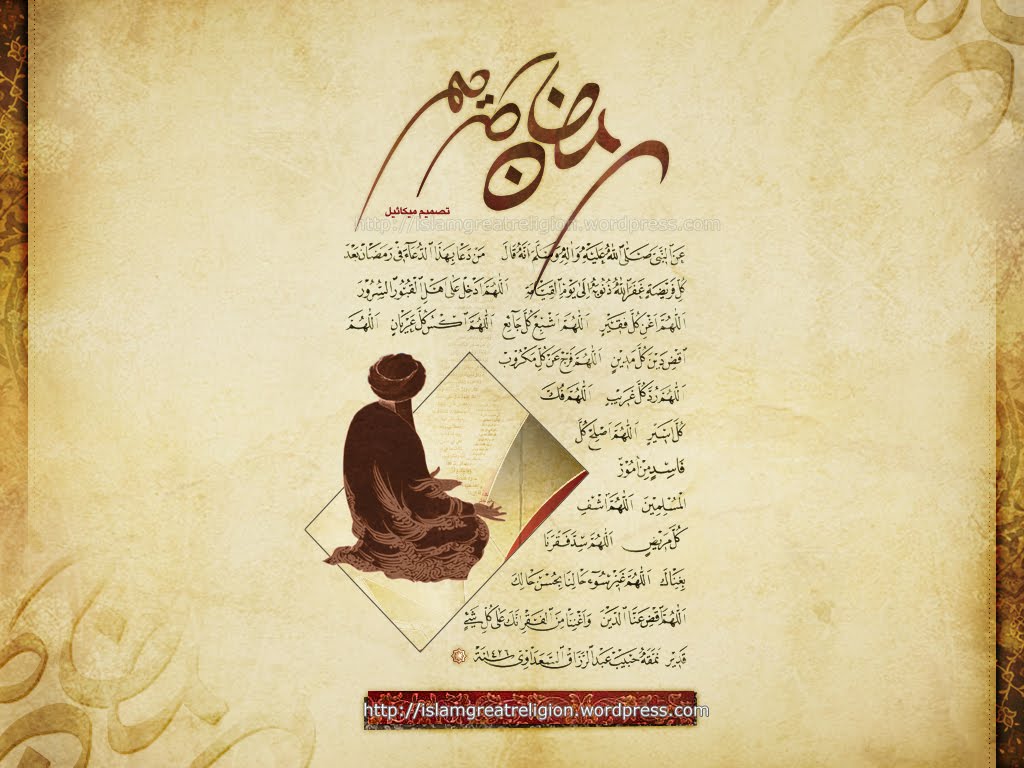 رمضان كريم
تصميم ميكائيل
http://islamgreatreligion.wordpress.com
عَنِ النَّبِيِّ صَلَّى اللهُ عَلَيْهِ وَآلِهِ وَسَلَّمَ أَنَّهُ قَالَ مَنْ دَعَا بِهَذَا الدُّعَاءِ فِي رَمَضَانَ بَعْدَ
كُلِّ فَرِيضَةٍ غَفَرَ اللهُ ذُنُوبَهُ إِلَى يَوْمِ الْقِيَامَةِ اَللّٰهُمَّ أَدْخِلْ عَلَى أَهْلِ الْقُبُورِ السُّرُورَ
اَللّٰهُمَّ أَغْنِ كُلَّ فَقِيرٍ اَللّٰهُمَّ أَشْبِعْ كُلَّ جَائِعٍ اَللّٰهُمَّ اكْسُ كُلَّ عُرْيَانٍ اَللّٰهُمَّ
اقْضِ دَيْنَ كُلِّ مَدِينٍ اَللّٰهُمَّ فَرِّجْ عَنْ كُلِّ مَكْرُوبٍ
اَللّٰهُمَّ رُدَّ كُلَّ غَرِيبٍ اَللّٰهُمَّ فُكَّ
كُلَّ أَسِيرٍ اَللّٰهُمَّ أَصْلِحْ كُلَّ
فَاسِدٍ مِنْ أُمُورِ
الْمُسْلِمِينَ اَللّٰهُمَّ اشْفِ
كُلَّ مَرِيضٍ اَللّٰهُمَّ سُدَّ فَقْرَنَا
بِغِنَاكَ اَللّٰهُمَّ غَيِّرْ سُوءَ حَالِنَا بِحُسْنِ حَالِكَ
اَللّٰهُمَّ اقْضِ عَنَّا الدَّيْنَ وَأَغْنِنَا مِنَ الْفَقْرِ إِنَّكَ عَلَى كُلِّ شَيْءٍ
قَدِيرٌ نَمَّقَهُ حَبِيبُ عَبْدِ الرَّزَّاقِ السَّعْدَاوِي سَنَةَ ١٤٢٦
http://islamgreatreligion.wordpress.com